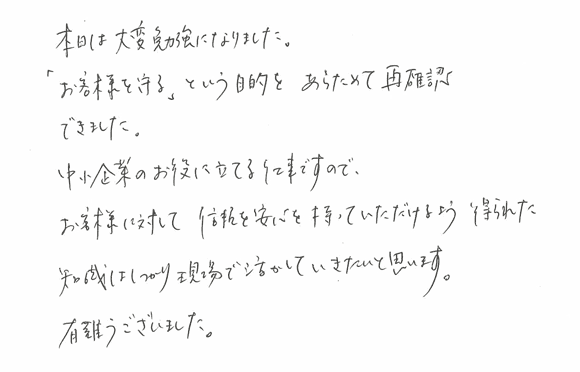 本日は大変勉強になりました。
「お客様を守る」という目的を あらためて再確認
できました。
中小企業のお役に立てる仕事ですので、
お客様に対して 信頼を安心を持っていただけるよう 得られた
知識はしっかり現場で活かしていきたいと思います。
有難うございました。